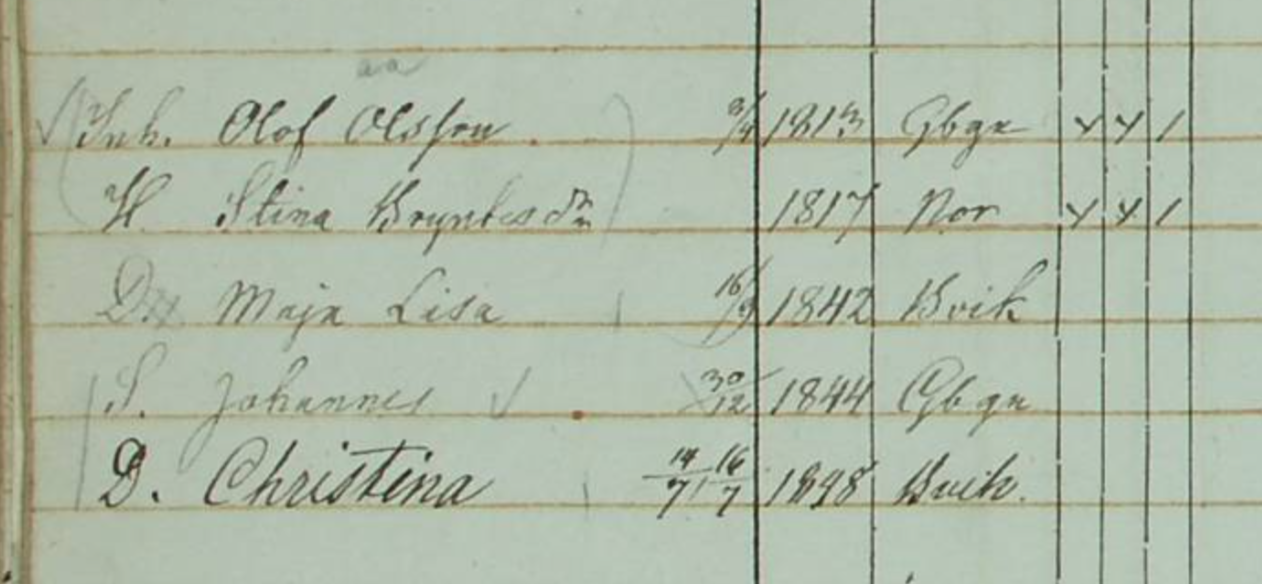 aa
Inh. Olof Olsson. 3/4 1813 Gbga
H. Stina Bryntesdr 1817 Nor
D Maja Lisa 16/9 1842 Bvik
S. Johannes 30/12 1844 Gbga
D. Christina 14/7 16/7 1848 Bvik.